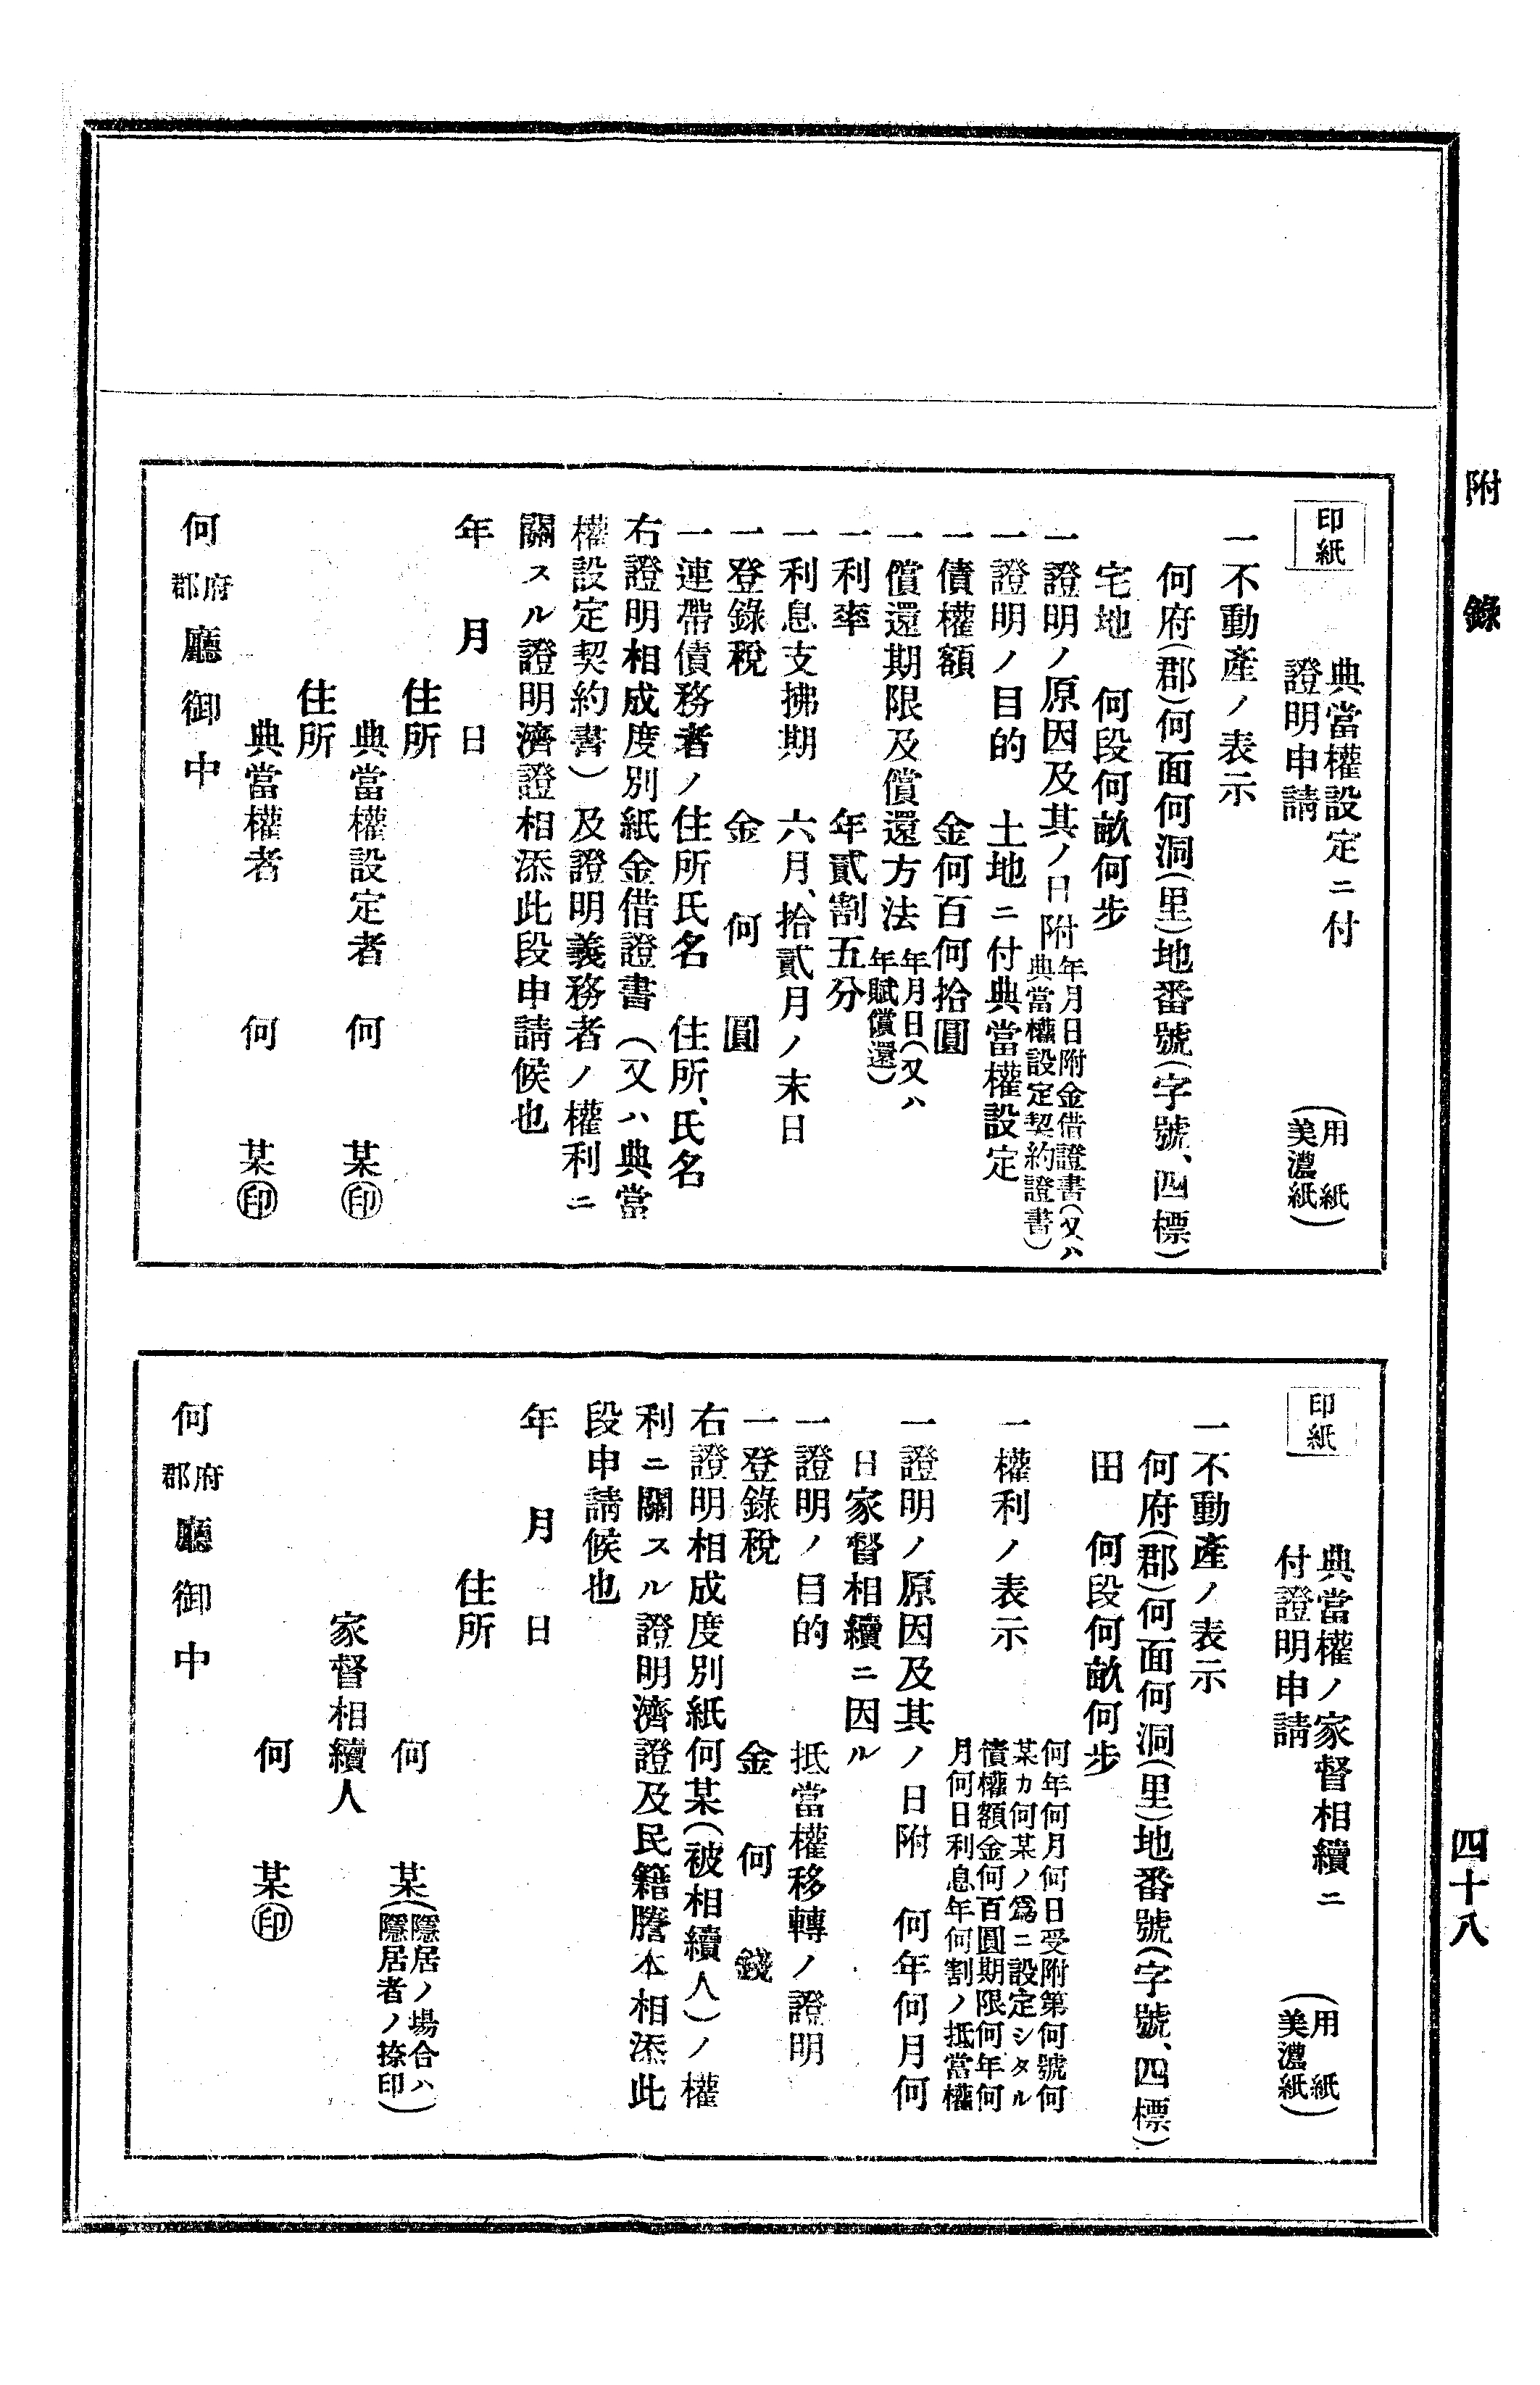 附錄
四十八
印紙
典當權設定ニ付
證明申請
(用紙
美濃紙)
一不動產ノ表示
何府(郡)何面何洞(里)地番號(字號、四標)
宅地　何段何畝何步
一證明ノ原因及其ノ日附　年月日附金借證書(又ハ
典當權設定契約證書)
一證明ノ目的　土地ニ付典當權設定
一債權額　金何百何拾圓
一償還期限及償還方法　年月日(又ハ
年賦償還)
一利率　年貳割五分
一利息支拂期　六月、拾貳月ノ末日
一登錄稅　金何圓
一連帶債務者ノ住所氏名　住所、氏名
右證明相成度別紙金借證書(又ハ典當
權設定契約書)及證明義務者ノ權利ニ
關スル證明濟證相添此段申請候也
年月日
住所
典當權設定者　何某㊞
住所
典當權者　何某㊞
何府郡廳御中
印紙
典當權ノ家督相續ニ
付證明申請
(用紙
美濃紙)
一不動產ノ表示
何府(郡)何面何洞(里)地番號(字號、四標)
田　何段何畝何步
一權利ノ表示　何年何月何日受附第何號何
某カ何某ノ爲ニ設定シタル
債權額金何百圓期限何年何
月何日利息年何割ノ抵當權
一證明ノ原因及其ノ日附　何年何月何
日家督相續ニ因ル
一證明ノ目的　抵當權移轉ノ證明
一登錄稅　金何錢
右證明相成度別紙何某(被相續人)ノ權
利ニ關スル證明濟證及民籍謄本相添此
段申請候也
年月日
住所
何某(隱居ノ場合ハ
隱居者ノ捺印)
家督相續人
何某㊞
何府郡廳御中